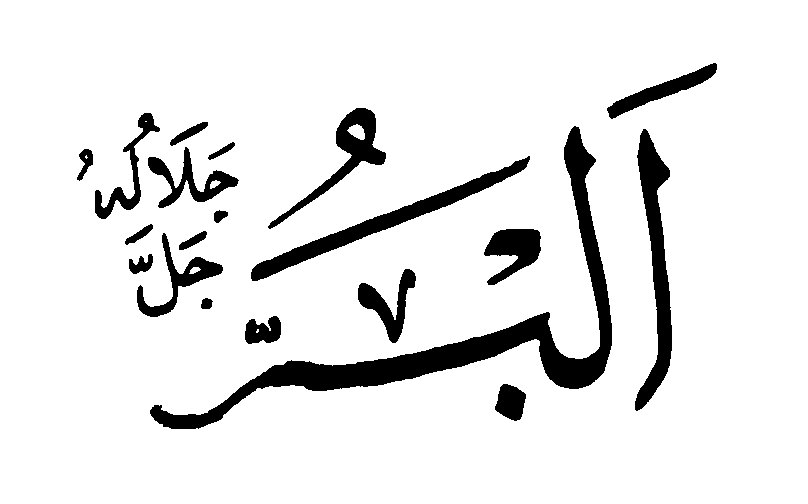 اَلْبَرُّ
جَلَّ
جَلَالُهُ